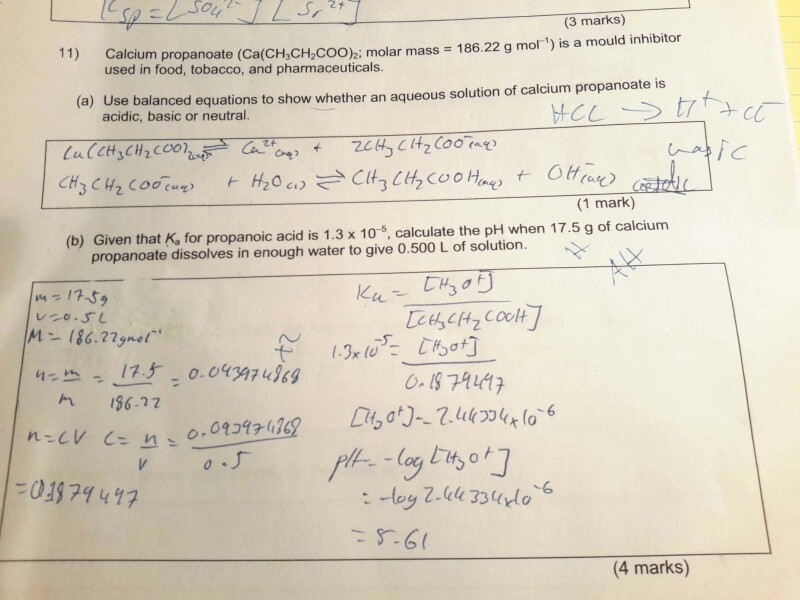 Ksp = [SO4²⁻] [Sr²⁺]
(3 marks)
11) Calcium propanoate (Ca(CH₃CH₂COO)₂; molar mass = 186.22 g mol⁻¹) is a mould inhibitor
used in food, tobacco, and pharmaceuticals.
(a) Use balanced equations to show whether an aqueous solution of calcium propanoate is
acidic, basic or neutral.
HCl → H⁺ + Cl⁻
Ca(CH3CH2COO)2(aq) ⇌ Ca²⁺(aq) + 2CH3CH2COO⁻(aq)
CH3CH2COO⁻(aq) + H2O(l) ⇌ CH3CH2COOH(aq) + OH⁻(aq) basic
(1 mark)
(b) Given that Kₐ for propanoic acid is 1.3 x 10⁻⁵, calculate the pH when 17.5 g of calcium
propanoate dissolves in enough water to give 0.500 L of solution.
m = 17.5g
v = 0.5L
M = 186.22gmol⁻¹
n = m/M = 17.5/186.22 = 0.093974868
n = CV C = n/V = 0.093974868/0.5
= 0.1879497
Ka = [H3O+]/[CH3CH2COOH]
1.3x10⁻⁵ = [H3O+]/0.1879497
[H3O+] = 2.44334x10⁻⁶
pH = -log[H3O+]
= -log 2.44334x10⁻⁶
= 5.61
(4 marks)